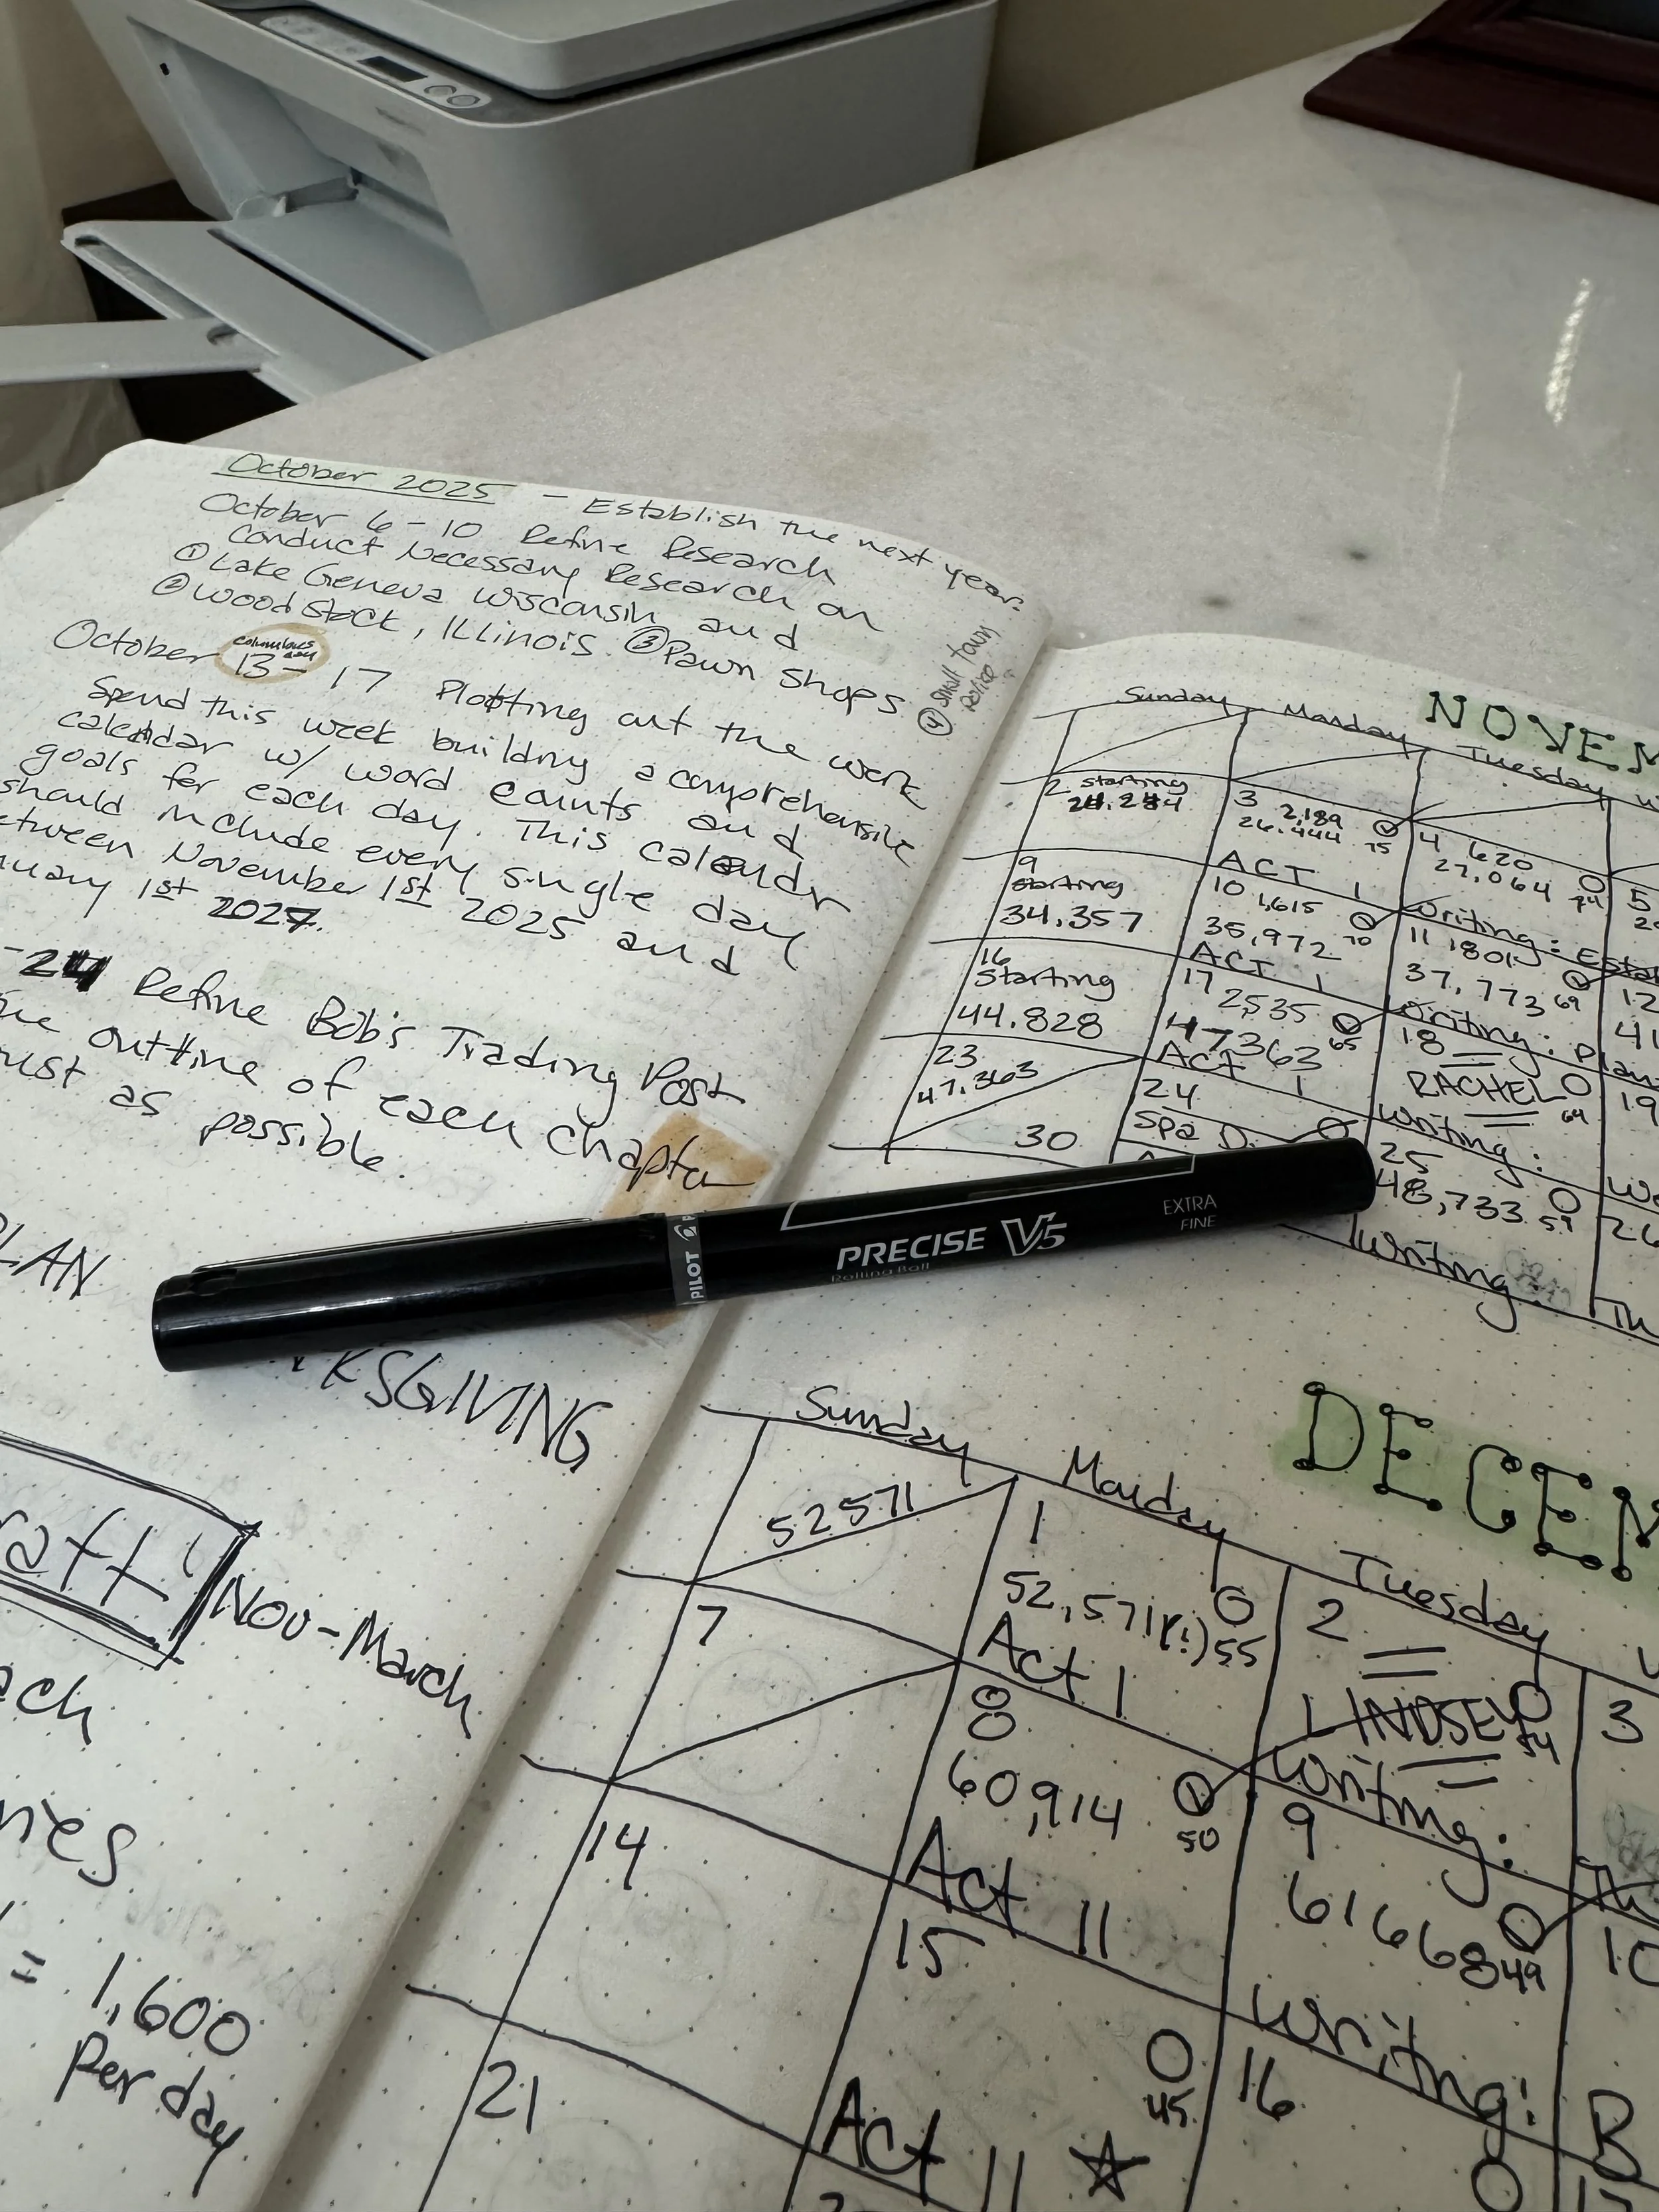 October 2025 - Establish the next year.
October 6-10 Refine Research
Conduct Necessary Research on
① Lake Geneva Wisconsin and
② Woodstock, Illinois. ③ Pawn Shops
④ small town police
columbus day
October 13-17 Plotting out the work
Spend this week building a comprehensive
calendar w/ word counts and
goals for each day. This calendr
should include every single day
etween November 1st 2025 and
nuary 1st 2027.
-24 Refine Bob's Trading Post
outline of each chapter
as possible.
LAN
KSGIVING
raft! Nov-March
ach
= 1,600
per day
NOVEM
Sunday Monday Tuesday
2 starting
3 2,189
26,444 75
ACT 1
4 620
27,064 74
Writing: Estab
5
9 starting
34,357
10 1,615
35,972 70
ACT 1
11 1801
37,773 69
Writing: Plan
12
41
16 Starting
44,828
17 2,535
47363 65
ACT 1
18
RACHEL 64
Writing:
19
We
23
47,363
24
Spa D.
25
48,733 59
Writing:
26
Th
30
PILOT
PRECISE V5
Rolling Ball
EXTRA
FINE
DECEM
Sunday Monday Tuesday
52571
1
52,571(!) 55
Act 1
2
LINDSEY 54
Writing:
3
Th
7
8
60,914 50
Act 11
9
61668 49
Writing:
10
B
14
15
45
Act 11
16
21